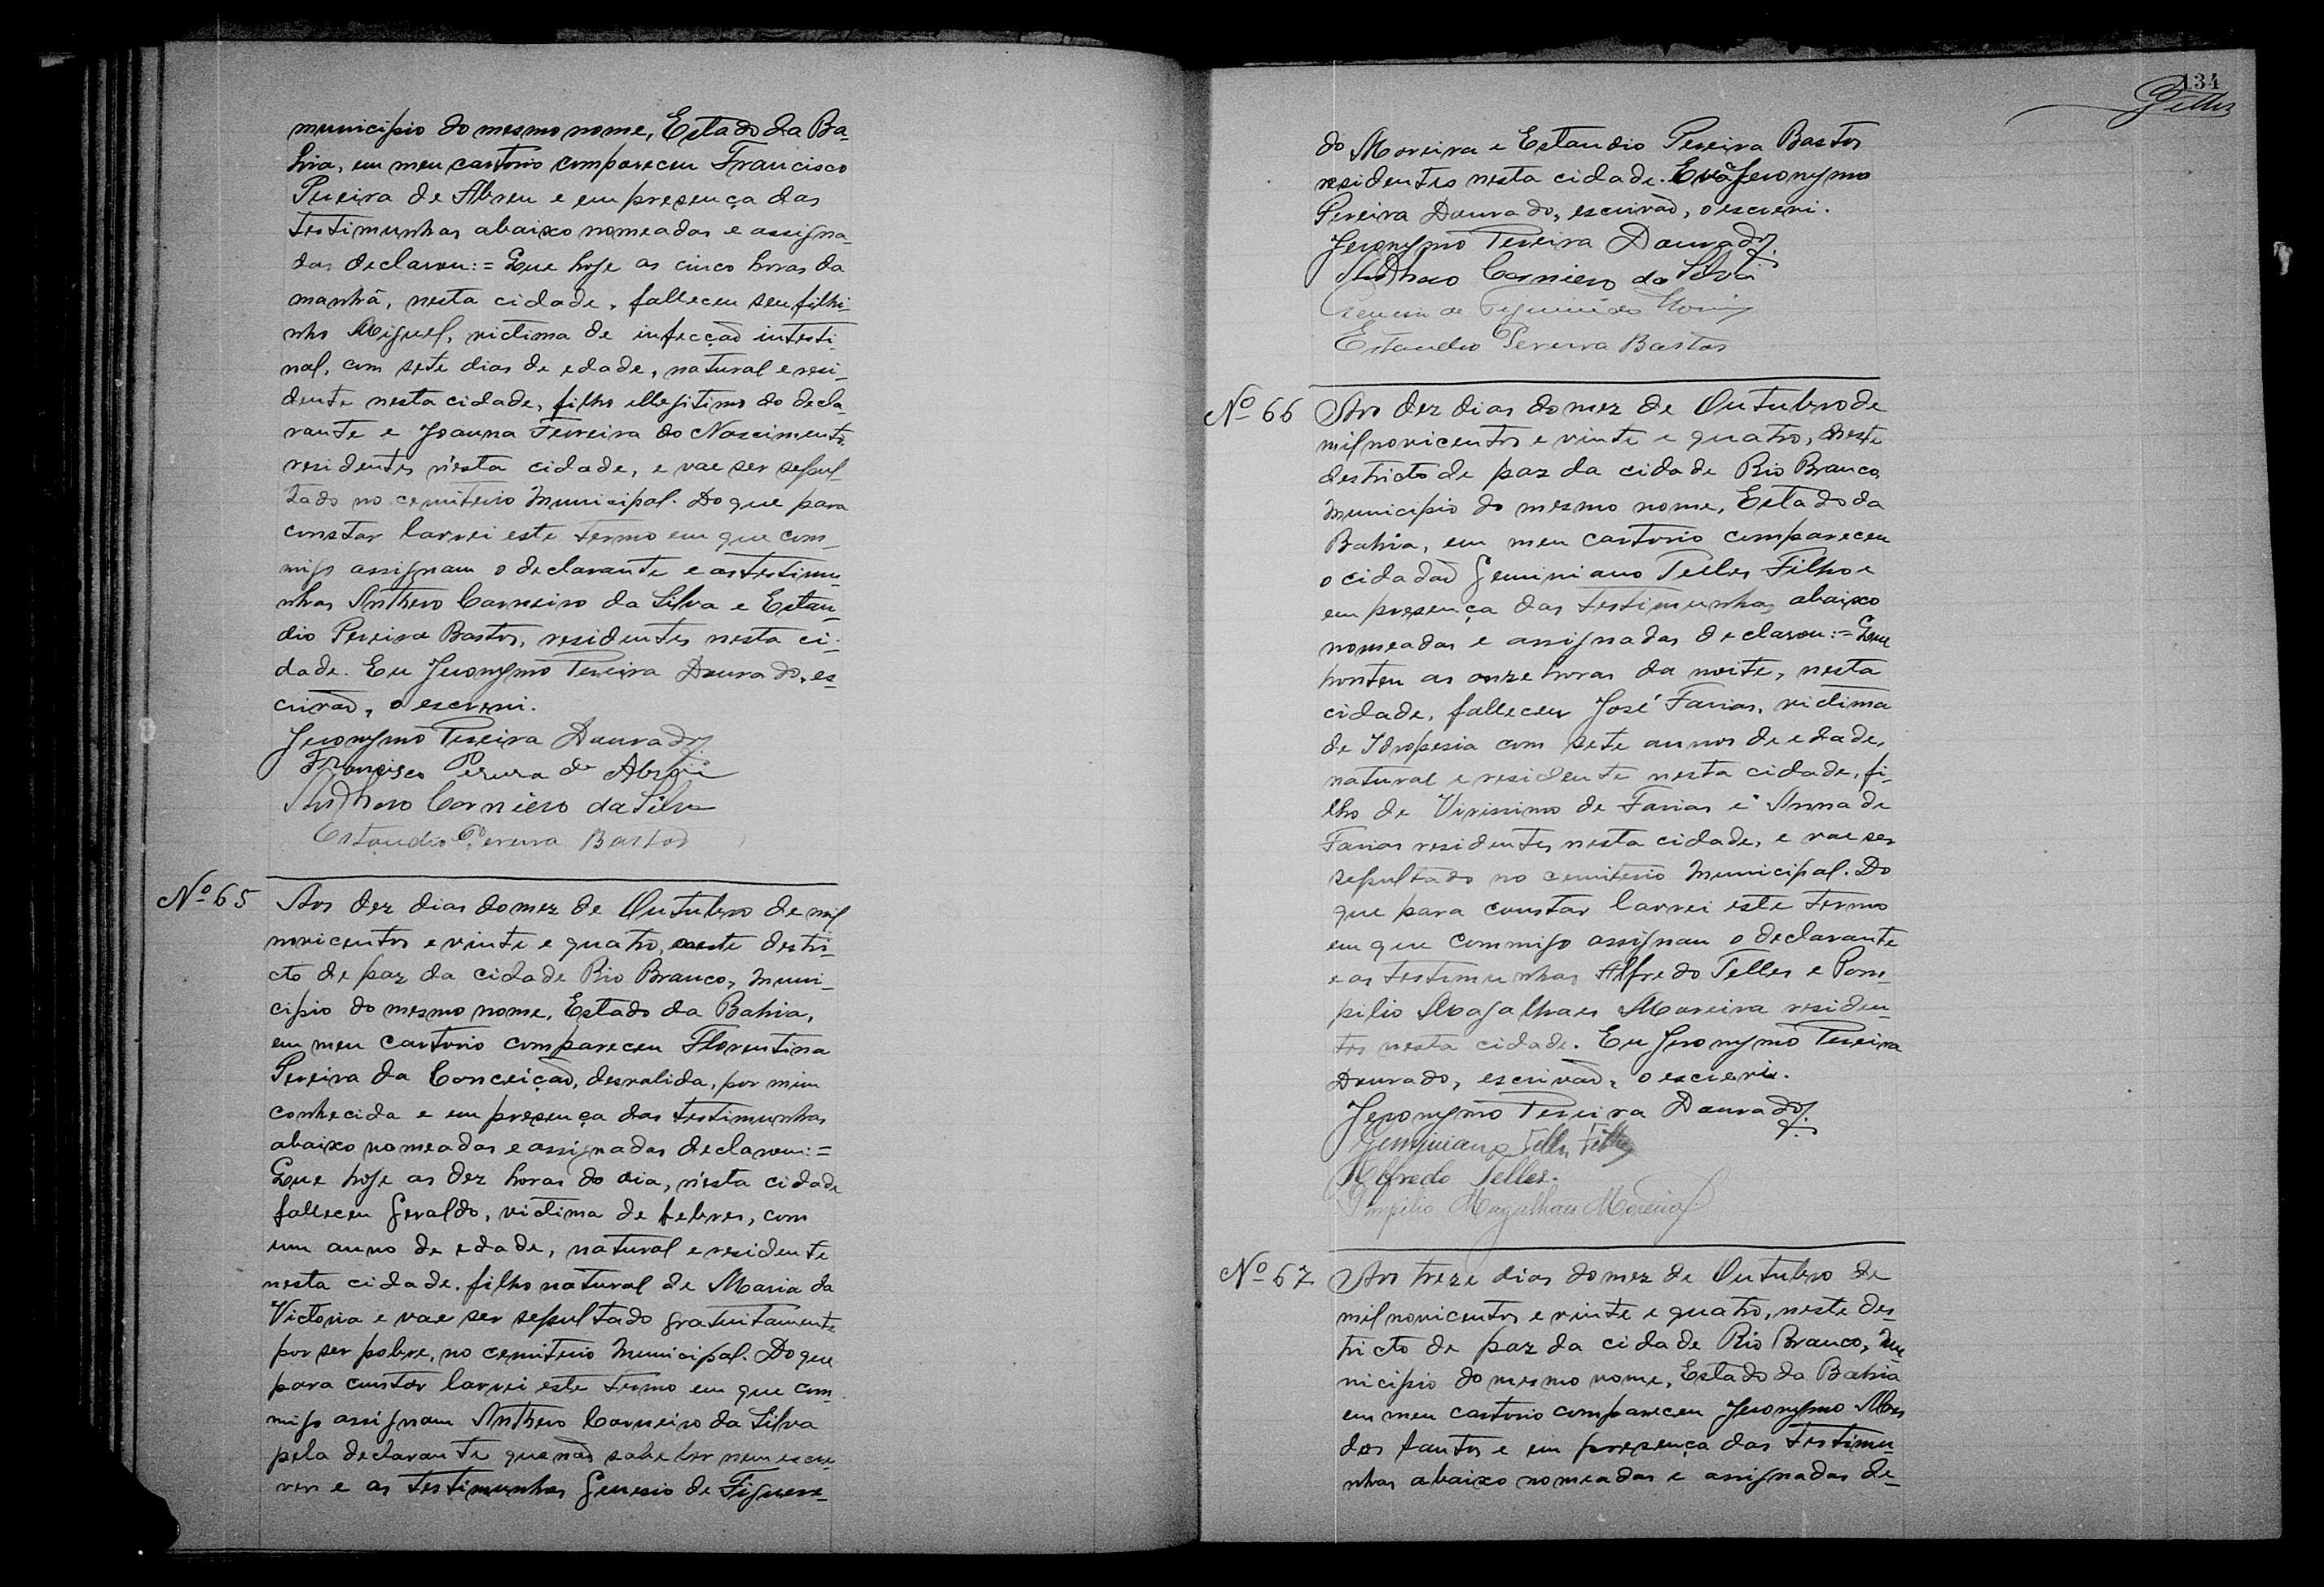 municipio do mesmo nome, Estado da Ba-
hia, em meu cartorio compareceu Francisco
Pereira de Abreu e em presença das
testimunhas abaixo nomeadas e assigna-
das declarou:= Que hoje as cinco horas da
manhã, nesta cidade, falleceu seu filhi-
nho Miguel, victima de infecção intesti-
nal, com sete dias de edade, natural e resi-
dente nesta cidade, filho illegitimo do decla-
rante e Joanna Ferreira do Nascimento,
residentes n'esta cidade, e vae ser sepul-
tado no cemiterio Municipal. Do que para
constar lavrei este termo em que com-
migo assignam o declarante e as testimu-
nhas Anthero Carneiro da Silva e Estau-
dio Pereira Bastos, residentes nesta ci-
dade. Eu Jeronymo Pereira Dourado, es-
crivão, o escrevi.
Jeronymo Pereira Dourado
Francisco Pereira de Abreu
Anthero Carneiro da Silva
Estaudio Pereira Bastos
Nº 65 Aos dez dias do mez de Outubro de mil
novicentos e vinte e quatro, neste destri-
cto de paz da cidade Rio Branco, Muni-
cipio do mesmo nome, Estado da Bahia,
em meu cartorio compareceu Florentina
Pereira da Conceição, desvalida, por mim
conhecida e em presença das testimunhas
abaixo nomeadas e assignadas declarou:=
Que hoje as dez horas do dia, n'esta cidade
falleceu Geraldo, victima de febres, com
um anno de edade, natural e residente
nesta cidade, filho natural de Maria da
Victoria e vae ser sepultado gratuitamente
por ser pobre, no cemiterio Municipal. Do que
para constar lavrei este termo em que com-
migo assignam Anthero Carneiro da Silva
pela declarante que não sabe ler nem escre-
ver e as testimunhas Genesio de Figuere-
134
Telles
do Moreira e Estaudio Pereira Bastos
residentes nesta cidade. Jeronymo
Pereira Dourado, escrivão, o escrevi.
Jeronymo Pereira Dourado
Anthero Carneiro da Silva
Genesio de Figueiredo
Estaudio Pereira Bastos
Nº 66 Aos dez dias do mez de Outubro de
mil novicentos e vinte e quatro, neste
destricto de paz da cidade Rio Branco,
Municipio do mesmo nome, Estado da
Bahia, em meu cartorio compareceu
o cidadão Geminiano Telles Filho e
em presença das testimunhas abaixo
nomeadas e assignadas declarou:= Que
hontem as onze horas da noite, nesta
cidade, falleceu José Farias, victima
de Idropesia com sete annos de edade,
natural e residente nesta cidade, fi-
lho de Virissimo de Farias e Anna de
Farias residentes nesta cidade, e vae ser
sepultado no cemiterio Municipal. Do
que para constar lavrei este termo
em que commigo assignam o declarante
e as testimunhas Alfredo Telles e Pom-
pilio Magalhaes Moreira residen-
tes nesta cidade. Eu Jeronymo Pereira
Dourado, escrivão, o escrevi.
Jeronymo Pereira Dourado
Geminiano Telles Filho
Alfredo Telles.
Pompilio Magalhaes Moreira
Nº 67 Aos treze dias do mez de Outubro de
mil novicentos e vinte e quatro, neste des-
tricto de paz da cidade Rio Branco, Mu-
nicipio do mesmo nome, Estado da Bahia
em meu cartorio compareceu Jeronymo Alves
dos Santos e em presença das testimu-
nhas abaixo nomeadas e assignadas de-